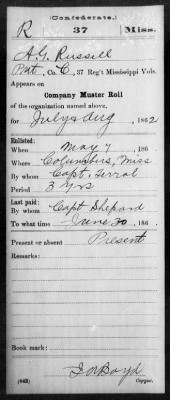 (Confederate.)
R 37 Miss.
A. G. Russell
Pvt, Co. C, 37 Reg't Mississippi Vols.
Appears on
Company Muster Roll
of the organization named above,
for July & Aug, 1862
Enlisted:
When May 7, 186 .
Where Columbus, Miss
By whom Capt. Terral
Period 3 Yrs
Last paid:
By whom Capt Shepard
To what time June 30, 186 .
Present or absent Present
Remarks:
Book mark:
(642) J W Boyd
Copyist.